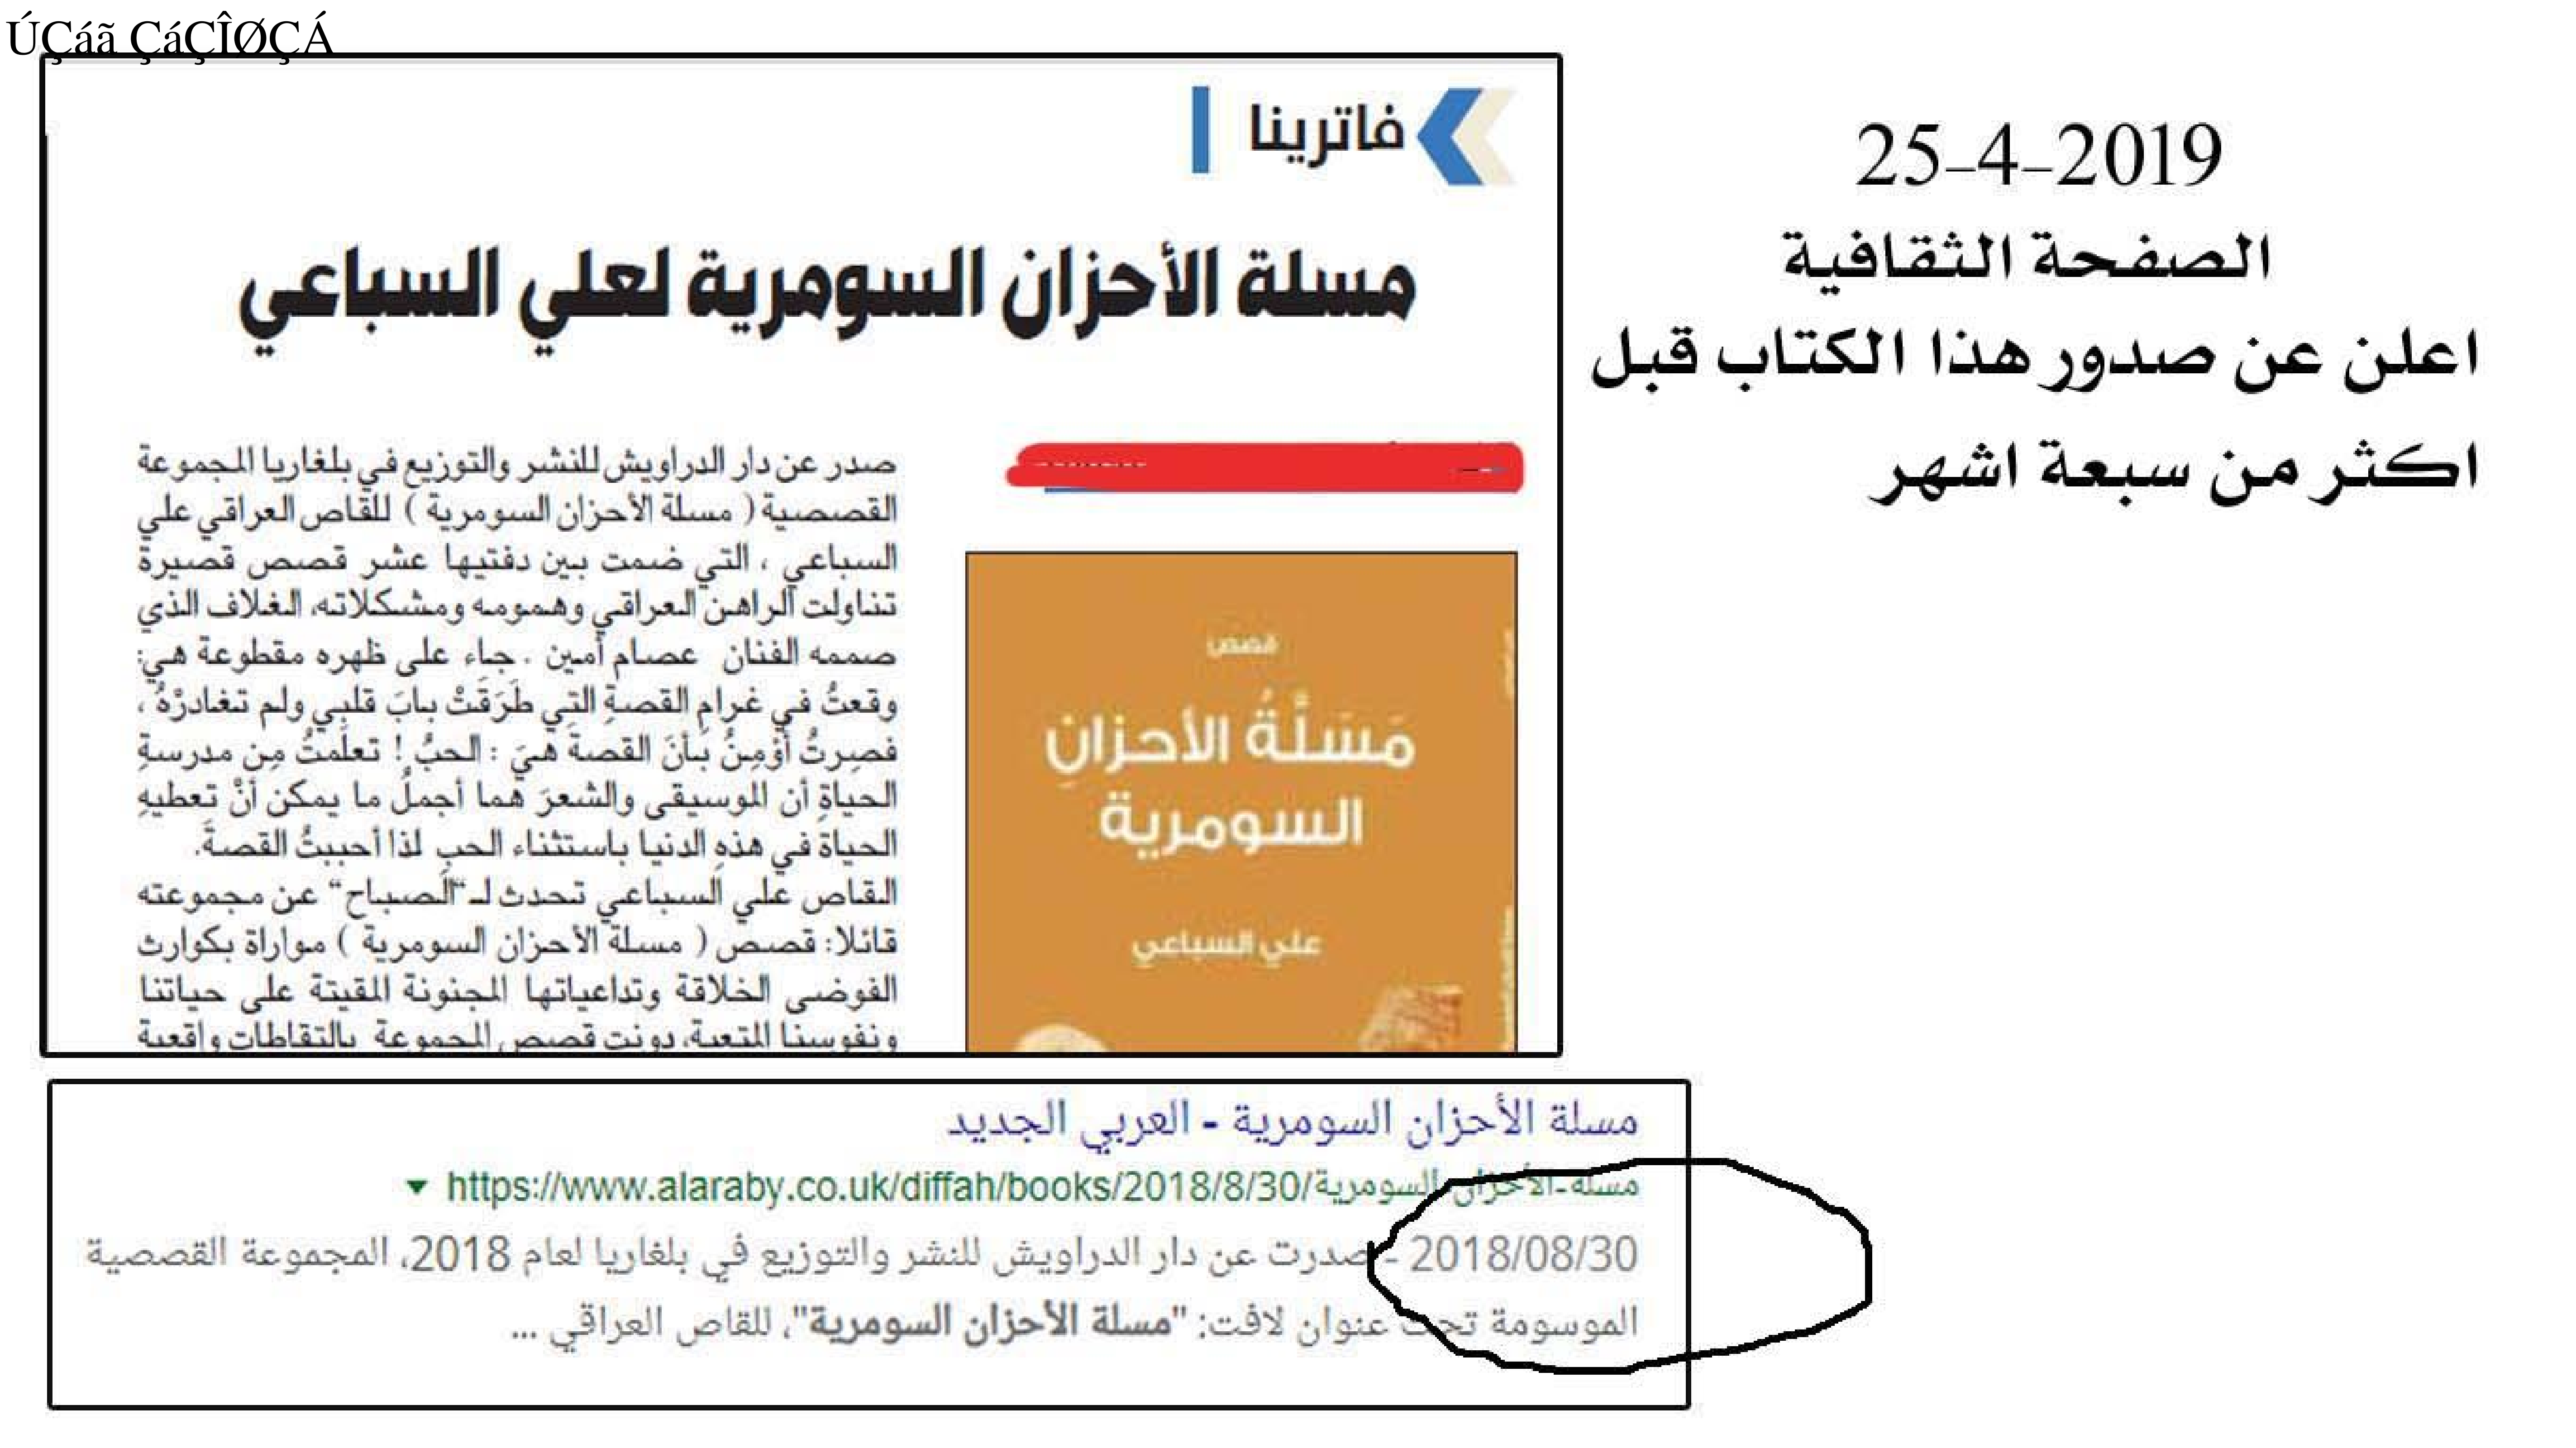 ÚÇáã ÇáÇÎØÇÁ
25-4-2019
الصفحة الثقافية
اعلن عن صدور هذا الكتاب قبل
اكثر من سبعة اشهر
فاترينا
مسلة الأحزان السومرية لعلي السباعي
صدر عن دار الدراويش للنشر والتوزيع في بلغاريا المجموعة
القصصية ( مسلة الأحزان السومرية ) للقاص العراقي علي
السباعي ، التي ضمت بين دفتيها عشر قصص قصيرة
تناولت الراهن العراقي وهمومه ومشكلاته، الغلاف الذي
صممه الفنان عصام أمين . جاء على ظهره مقطوعة هي:
وقعتُ في غرامِ القصةِ التي طَرَقَتْ بابَ قلبي ولم تغادرْهُ ،
فصِرتُ أؤمِنُ بأنَ القصةَ هيَ : الحبُّ ! تعلَمتُ مِن مدرسةِ
الحياةِ أن الموسيقى والشعرَ هما أجملُ ما يمكن أنْ تعطيهِ
الحياة في هذهِ الدنيا باستثناء الحبِ لذا أحببتُ القصةَ.
القاص علي السباعي تحدث لـ"الصباح" عن مجموعته
قائلا: قصص ( مسلة الأحزان السومرية ) مواراة بكوارث
الفوضى الخلاقة وتداعياتها المجنونة المقيتة على حياتنا
ونفوسنا المتعبة، دونت قصص المجموعة بالتقاطات واقعية
قصص
مَسَلَّةُ الأحزانِ
السومرية
علي السباعي
مسلة الأحزان السومرية - العربي الجديد
https://www.alaraby.co.uk/diffah/books/2018/8/30/مسلة-الأحزان-السومرية
2018/08/30 - صدرت عن دار الدراويش للنشر والتوزيع في بلغاريا لعام 2018، المجموعة القصصية
الموسومة تحت عنوان لافت: "مسلة الأحزان السومرية"، للقاص العراقي ...